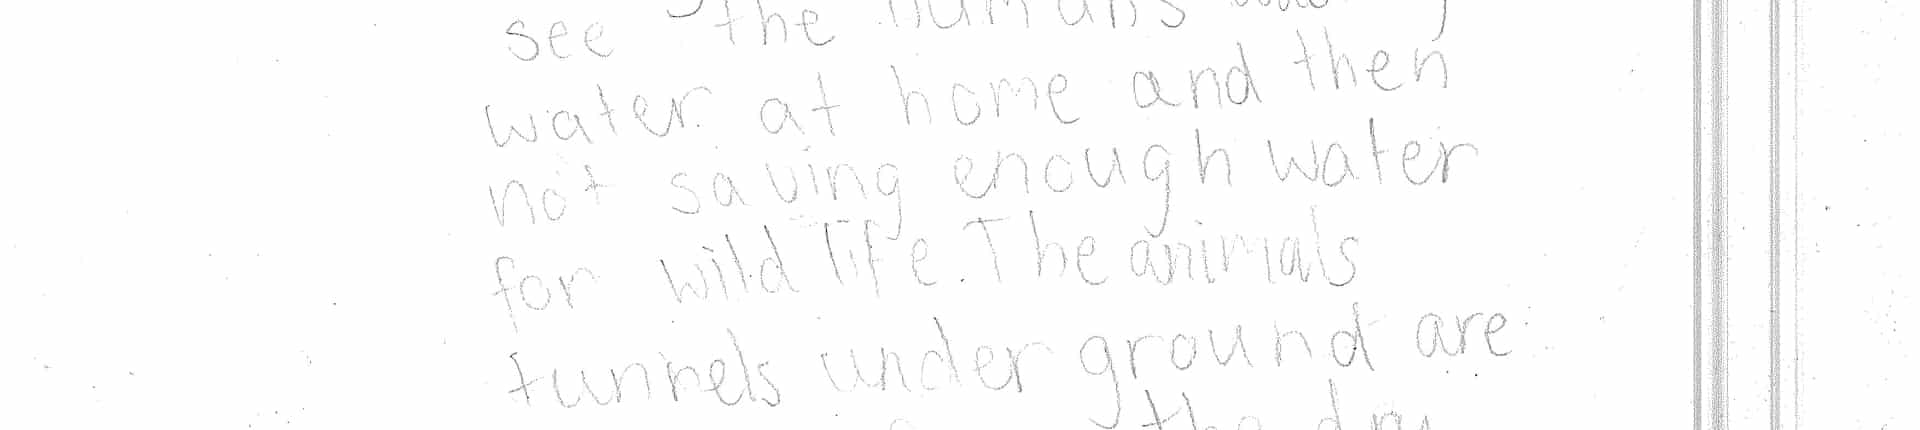 see the humans
water at home and then
not saving enough water
for wild life. The animals
tunnels under ground are
the dry